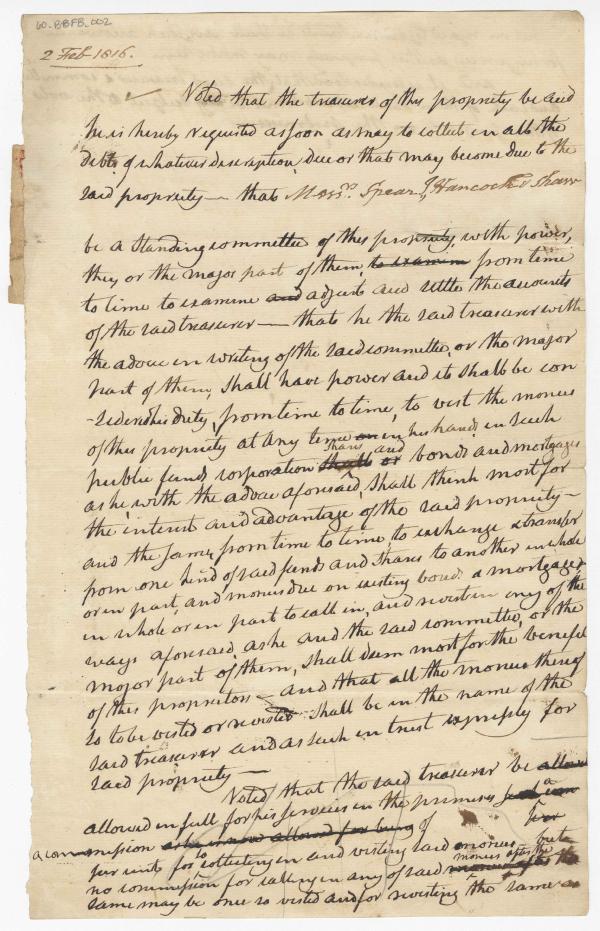 60-BBFB-002
2 Feb 1816.
Voted that the treasurer of this propriety be and
he is hereby requested as soon as may to collect in all the
debts of whatever description due or that may become due to the
said propriety — that Messrs Spear, Hancock & Shaw
be a standing committee of this propriety, with power,
they or the major part of them, to examine from time
to time to examine and adjust and settle the accounts
of the said treasurer — that he the said treasurer with
the advice in writing of the said committee, or the major
part of them, shall have power and it shall be con
-sidered his duty, from time to time, to vest the monies
of this propriety at any time on in his hands, in such
public funds corporation shall shares or and bonds and mortgages
as he, with the advice aforesaid, shall think most for
the interest and advantage of the said propriety —
and the same, from time to time, to exchange & transfer
from one kind of said funds and shares to another in whole
or in part, and monies due on existing bonds & mortgages
in whole or in part to call in, and revest in any of the
ways aforesaid, as he and the said committee, or the
major part of them, shall deem most for the benefit
of this proprietors — and that all the monies thereof
so to be vested or revested shall be in the name of the
said treasurer and as such in trust expressly for
said propriety —
Voted that the said treasurer be allowed
allowed in full for his services in the premises a
a commission of per
per cent for to collecting in and vesting said monies but
no commission for calling in any of said monies after the
same may be once so vested and for revesting the same a